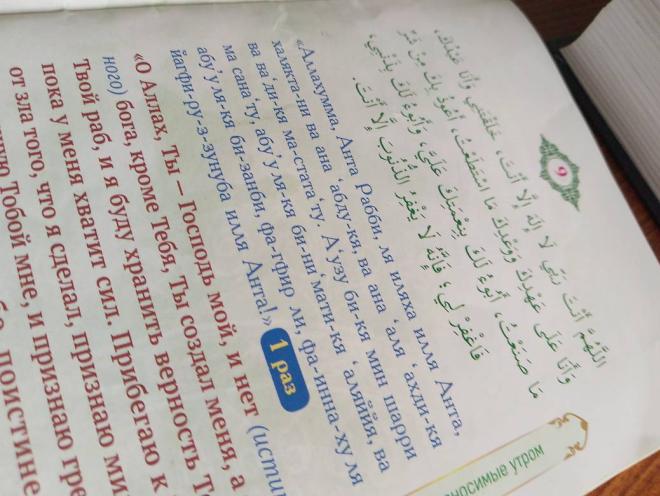 носимые утром
9
اللَّهُمَّ أَنْتَ رَبِّي لَا إِلَهَ إِلَّا أَنْتَ، خَلَقْتَنِي وَأَنَا عَبْدُكَ،
وَأَنَا عَلَى عَهْدِكَ وَوَعْدِكَ مَا اسْتَطَعْتُ، أَعُوذُ بِكَ مِنْ شَرِّ
مَا صَنَعْتُ، أَبُوءُ لَكَ بِنِعْمَتِكَ عَلَيَّ، وَأَبُوءُ لَكَ بِذَنْبِي،
فَاغْفِرْ لِي، فَإِنَّهُ لَا يَغْفِرُ الذُّنُوبَ إِلَّا أَنْتَ.
«Аллахумма, Анта Рабби, ля иляха илля Анта,
халякта-ни ва ана ‘абду-кя, ва ана ‘аля ‘ахди-кя
ва ва‘ди-кя ма-стата‘ту. А‘узу би-кя мин шарри
ма сана‘ту, абу’у ля-кя би-ни‘мати-кя ‘аляййя, ва
абу’у ля-кя би-занби, фа-гфир ли, фа-инна-ху ля
йагфи-ру-з-зунуба илля Анта!» 1 раз
«О Аллах, Ты – Господь мой, и нет (исти
ного) бога, кроме Тебя, Ты создал меня, а
Твой раб, и я буду хранить верность Т
пока у меня хватит сил. Прибегаю к
от зла того, что я сделал, признаю ми
Тобой мне, и признаю гре
поистине